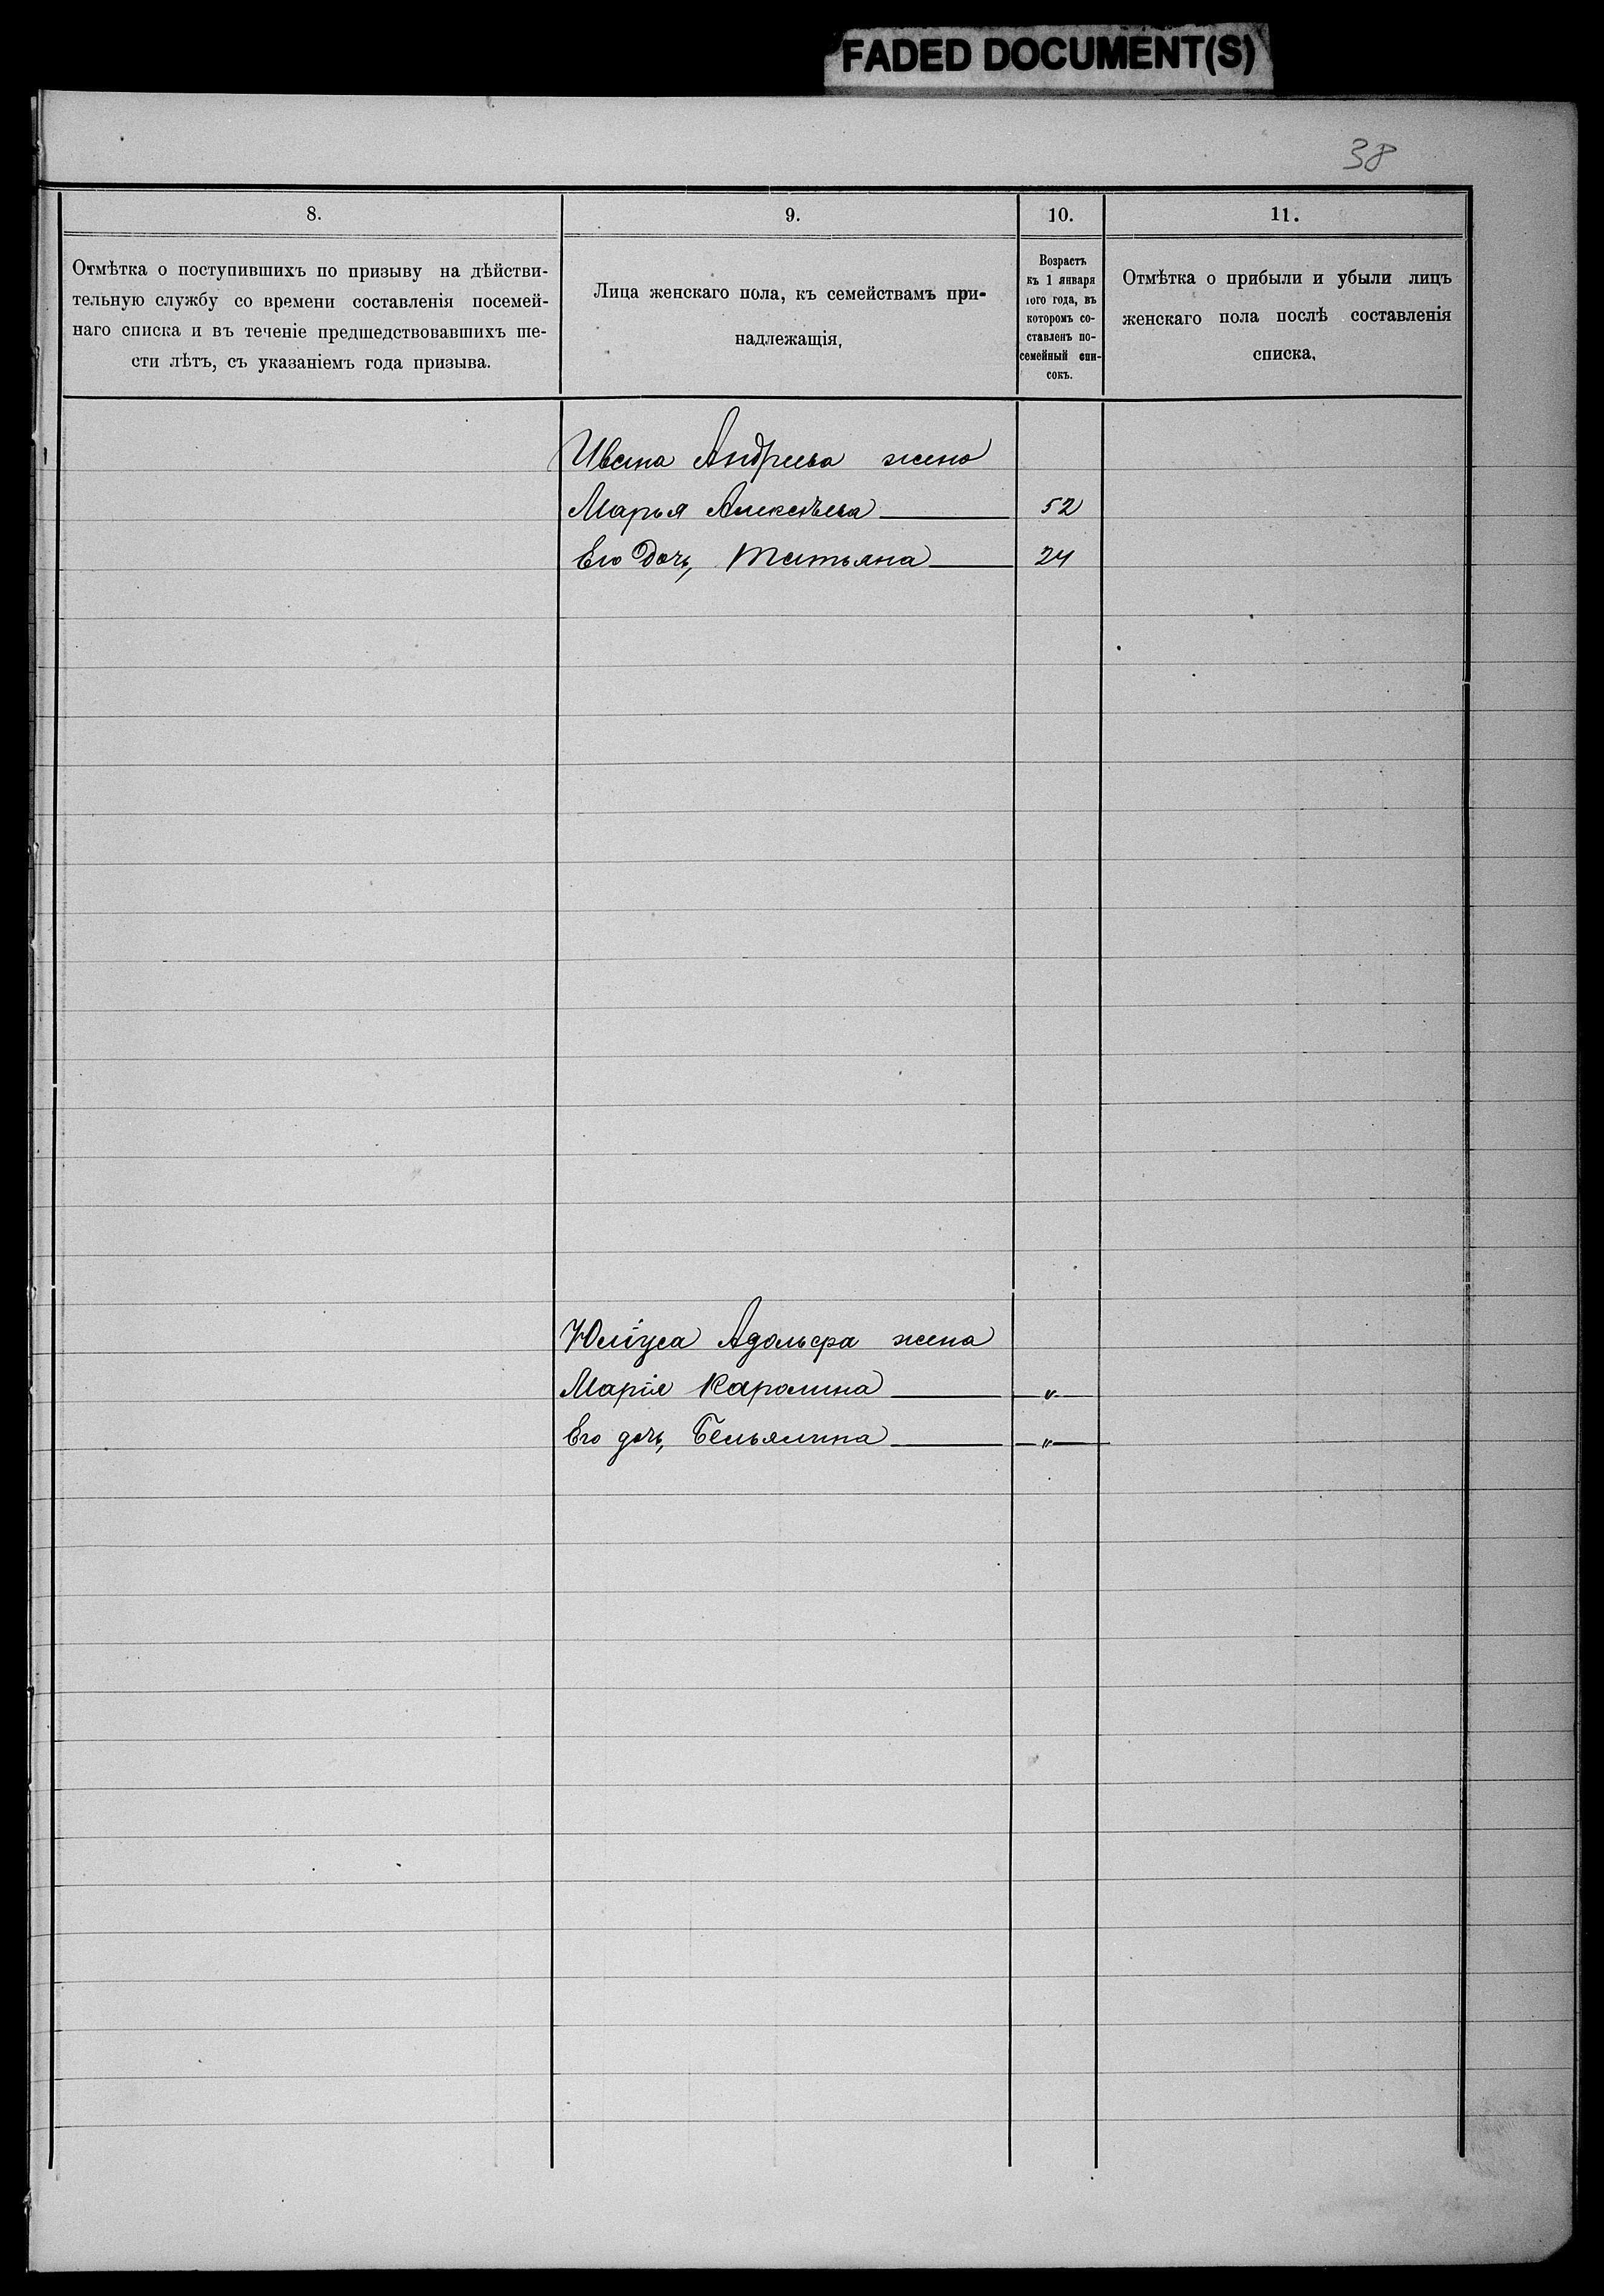 FADED DOCUMENT(S)
38
8.
Отмѣтка о поступившихъ по призыву на дѣйстви-
тельную службу со времени составленія посемей-
наго списка и въ теченіе предшедствовавшихъ ше-
сти лѣтъ, съ указаніемъ года призыва.
9.
Лица женскаго пола, къ семействамъ при-
надлежащія,
10.
Возрастъ
къ 1 января
того года, въ
которомъ со-
ставленъ по-
семейный спи-
сокъ.
11.
Отмѣтка о прибыли и убыли лицъ
женскаго пола послѣ составленія
списка.
Ивана Андреева жена
Марья Алексѣева 52
Его дочь, Татьяна 24
Юліуса Адольфа жена
Марія Каролина "
Его дочь, "